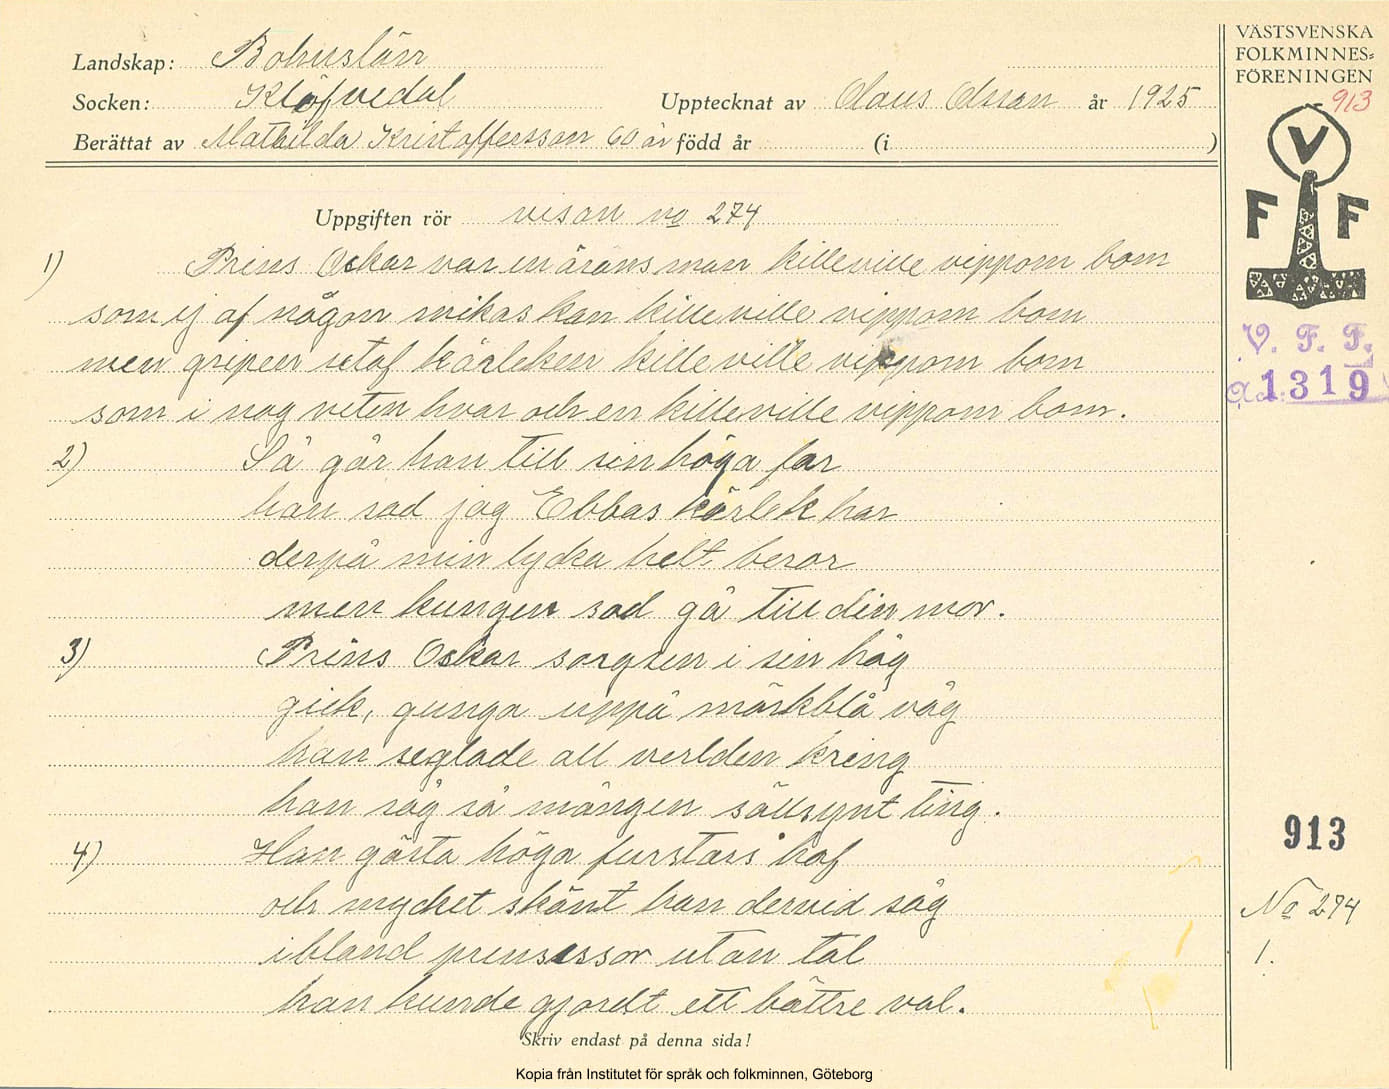 Landskap: Bohuslän
Socken: Klöfvedal
Upptecknat av Olaus Olsson år 1925
Berättat av Mathilda Kristoffersson 60 år född år (i )
VÄSTSVENSKA
FOLKMINNES=
FÖRENINGEN
913
V
F F
V. F. F.
1319
Uppgiften rör visan no 274
1) Prins Oskar var en ärans man killeville vippom bom
som ej af någon svikas kan killeville vippom bom
men gripen utaf kärleken killeville vippom bom
som i nog veten hvar och en killeville vippom bom.
2) Så går han till sin höga far
han sad jag Ebbas kärlek har
derpå min lycka helt beror
men kungen sad gå till din mor.
3) Prins Oskar sorgsen i sin håg
gick, gunga uppå mörkblå våg
han seglade all verlden kring
han såg så mången sällsynt ting.
4) Han gästa höga furstars hof
och mycket skönt han dervid såg
ibland prinsessor utan tal
han kunde gjordt ett bättre val.
913
No 274
1.
Skriv endast på denna sida!
Kopia från Institutet för språk och folkminnen, Göteborg